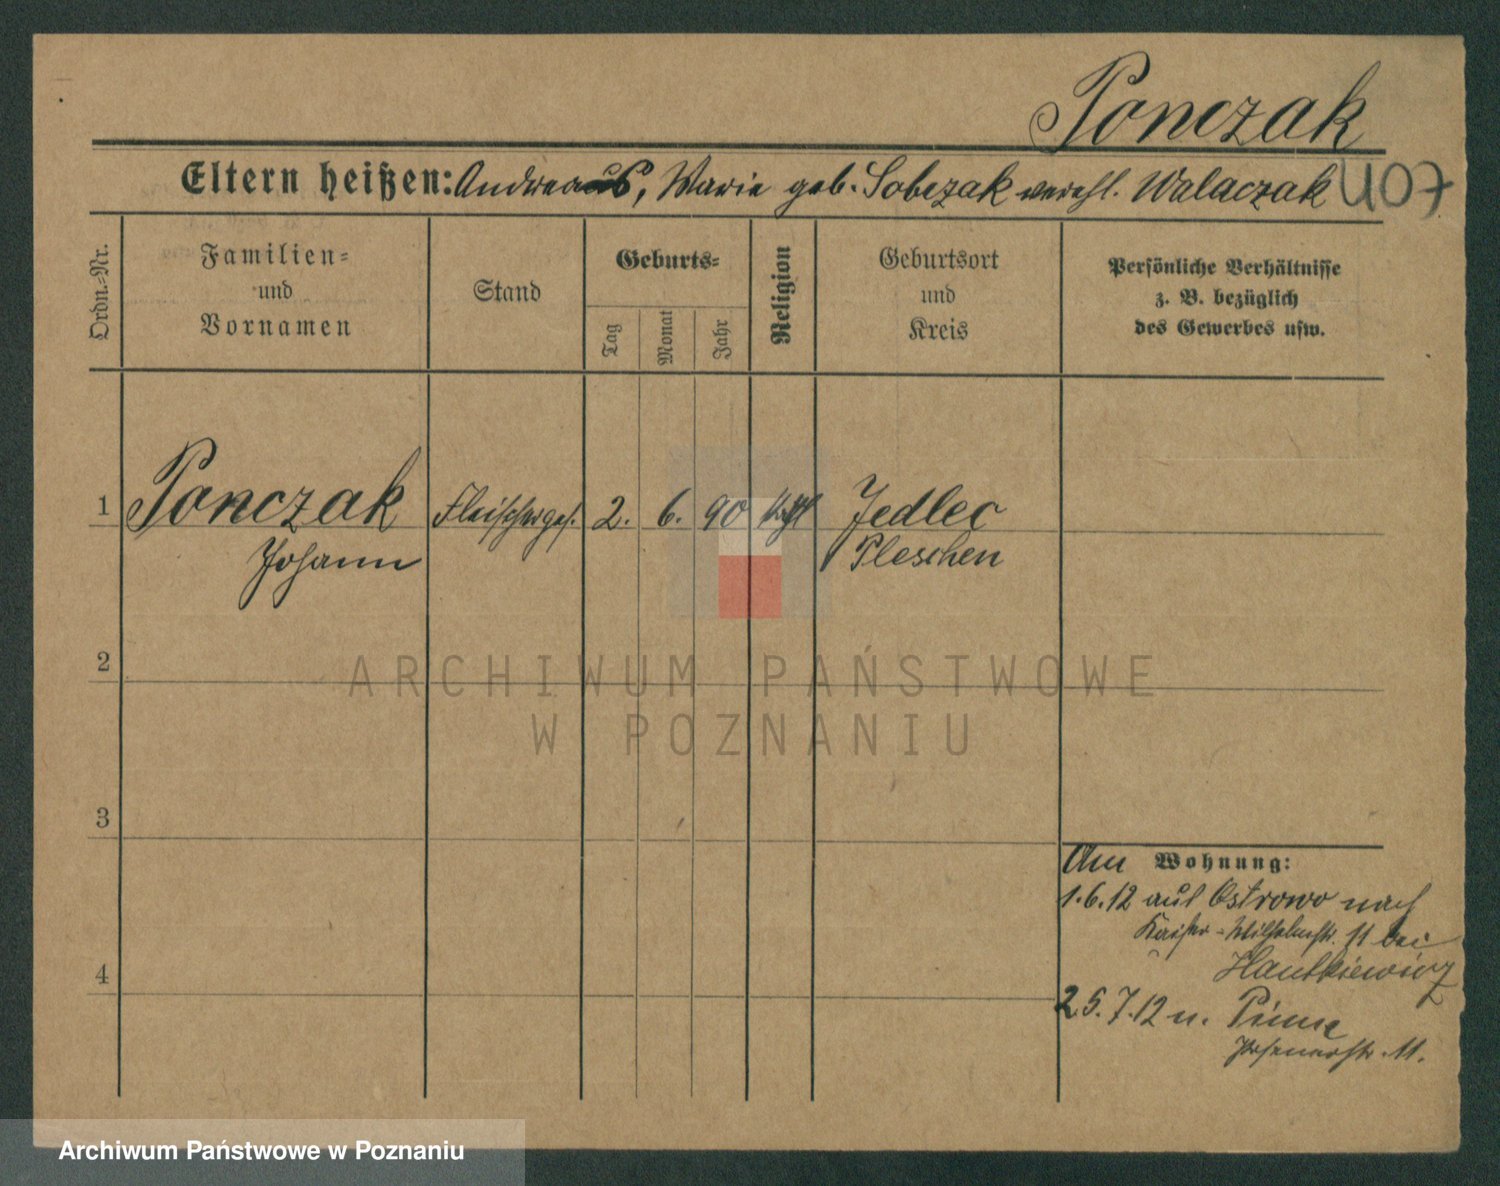 Ponczak
Eltern heißen: Andreas, Marie geb. Sobczak verehl. Walaczak
Ordn.-Nr.
Familien-
und
Vornamen
Stand
Geburts-
Tag
Monat
Jahr
Religion
Geburtsort
und
Kreis
Persönliche Verhältnisse
z. B. bezüglich
des Gewerbes usw.
1 Ponczak Fleischerges. 2. 6. 90 kath Jedlec
Johann Pleschen
2
3
4
Am Wohnung:
1.6.12 aus Ostrowo nach
Kaiser-Wilhelmstr. 11 bei
25.7.12 n. Pinne
Posenerstr. 11.
ARCHIWUM PAŃSTWOWE
W POZNANIU
Archiwum Państwowe w Poznaniu